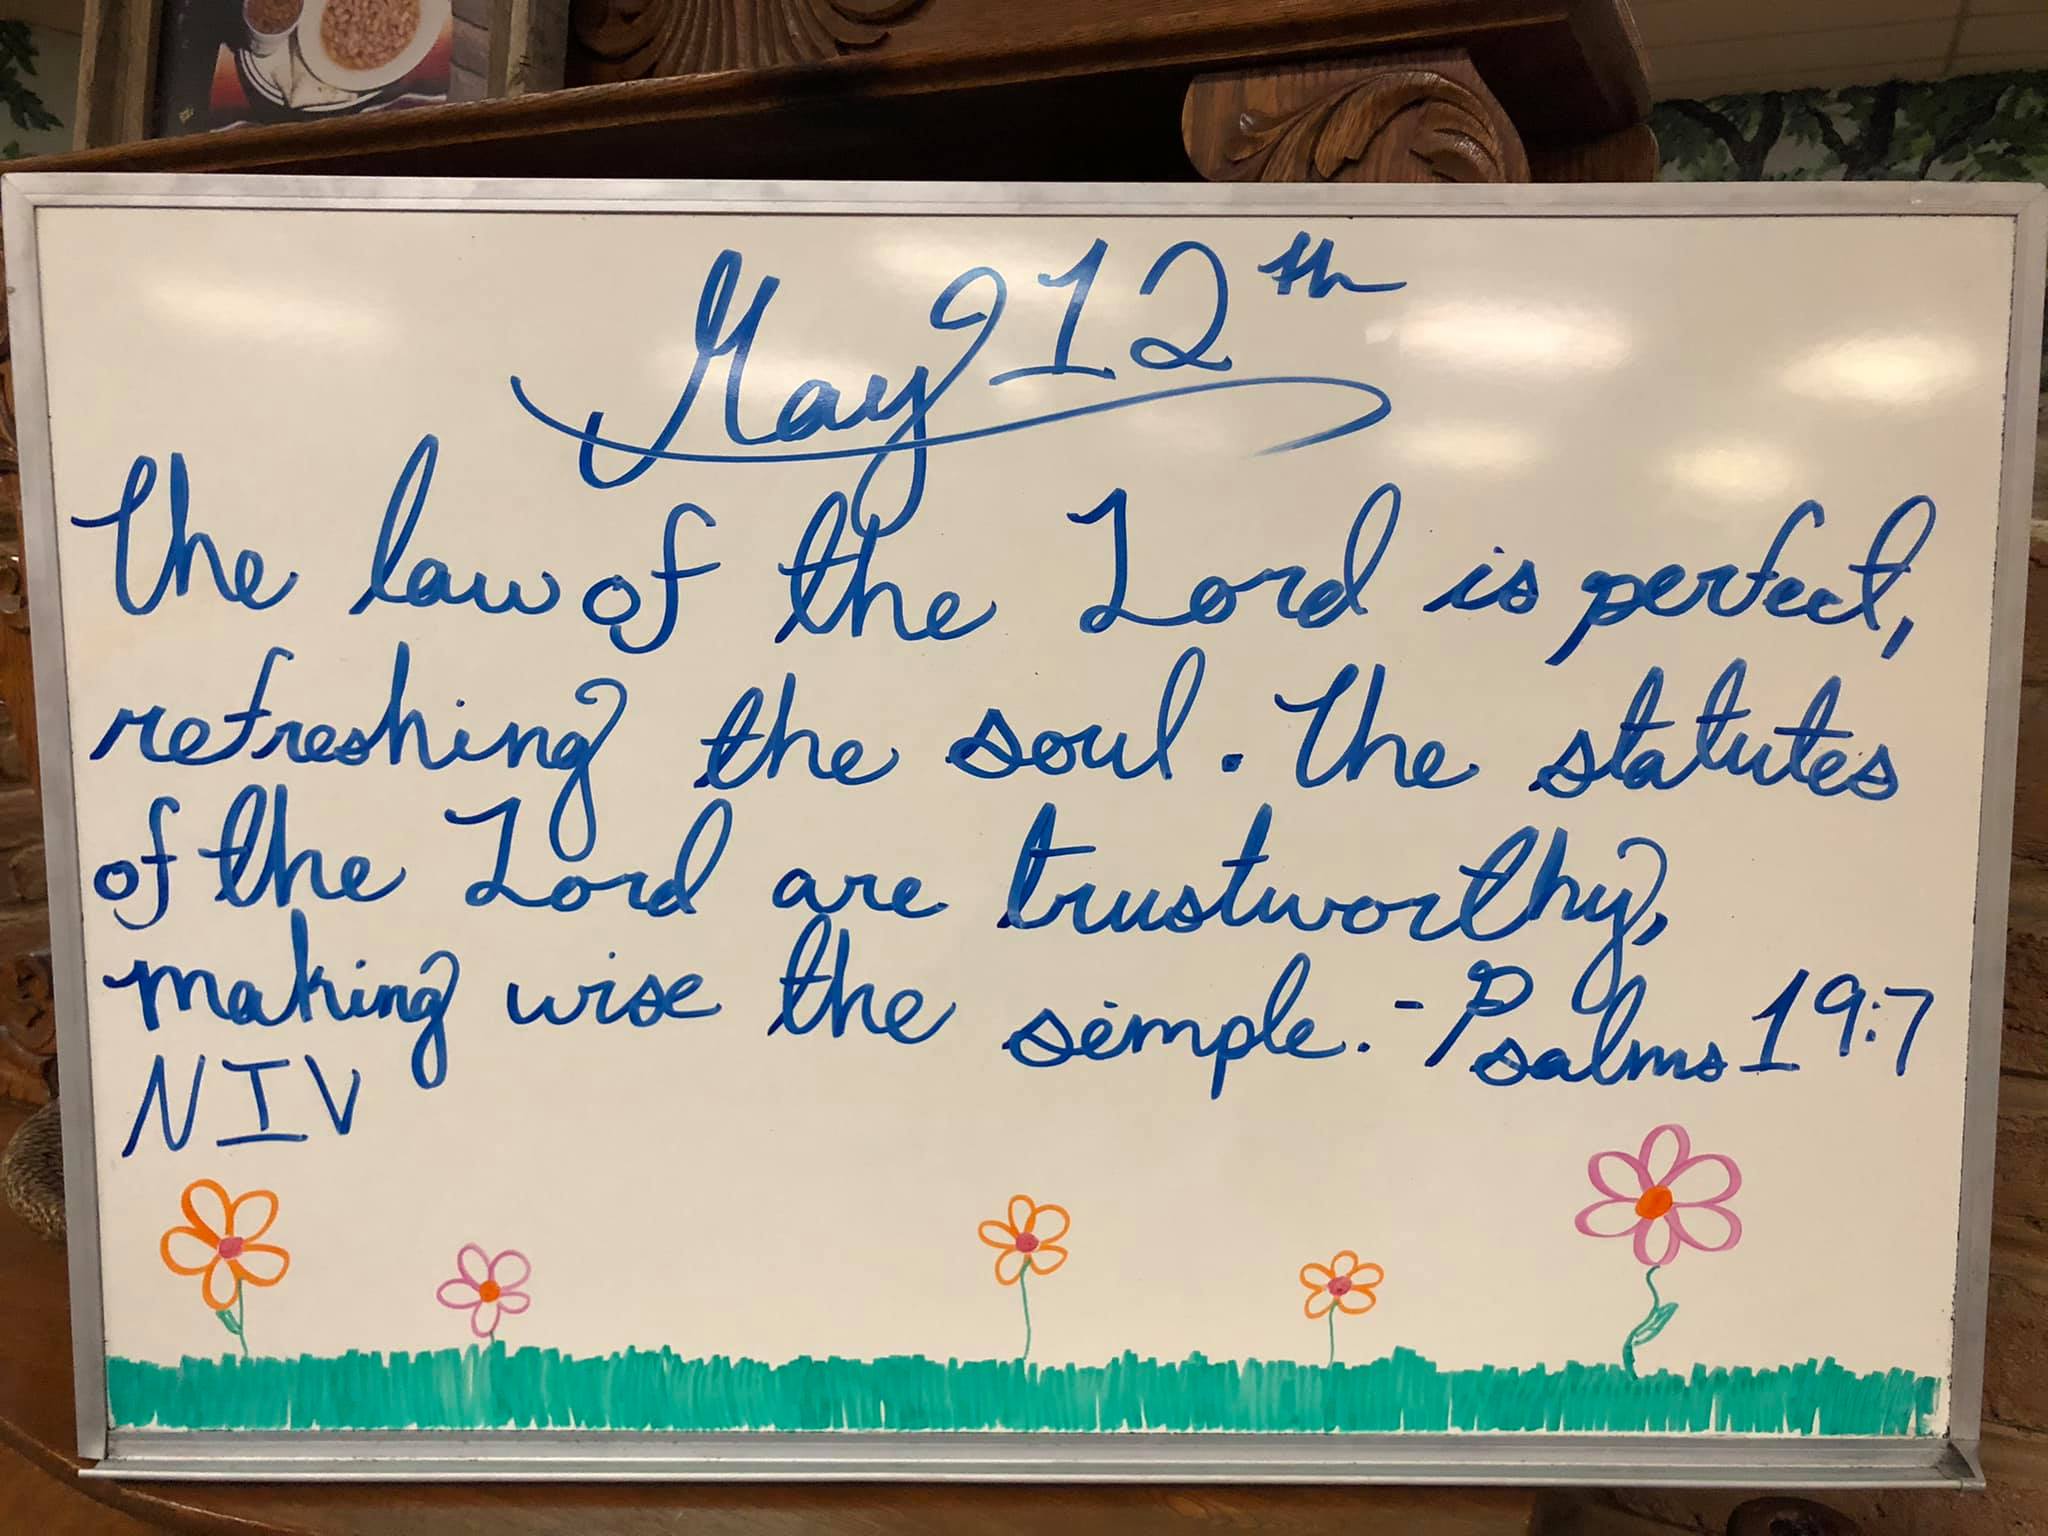 May 12th
The law of the Lord is perfect,
refreshing the soul. The statutes
of the Lord are trustworthy,
making wise the simple. - Psalms 19:7
NIV